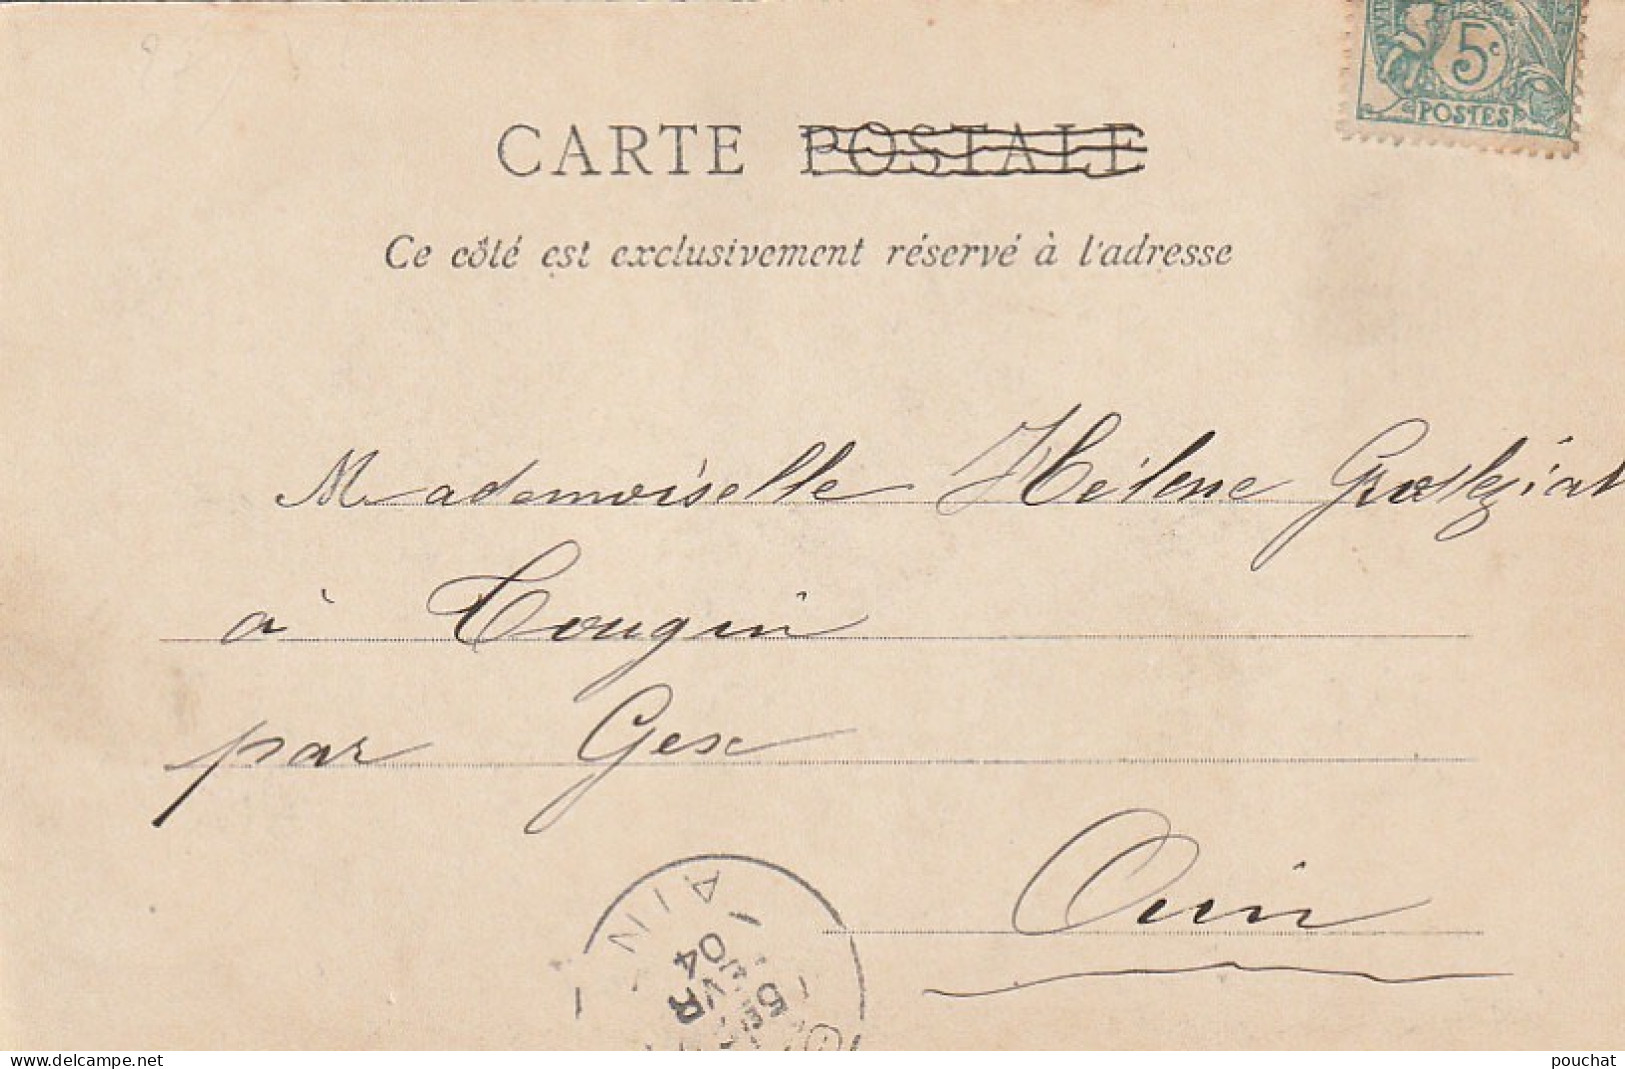 5c
POSTES
CARTE POSTALE
Ce côté est exclusivement réservé à l'adresse
Mademoiselle Hélène
à Tougin
par Gex
Ain
AIN
04
pouchat
www.delcampe.net